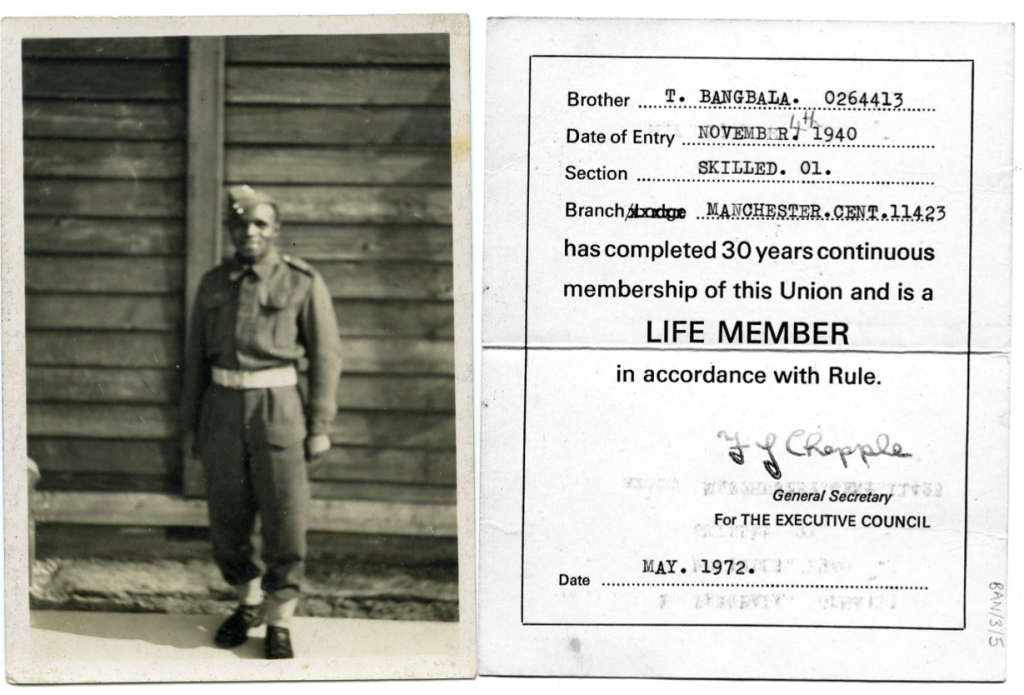 Brother T. BANGBALA. 0264413
Date of Entry NOVEMBER. 4TH 1940
Section SKILLED. 01.
Branch/Lodge MANCHESTER.CENT.11423
has completed 30 years continuous
membership of this Union and is a
LIFE MEMBER
in accordance with Rule.
F J Chapple
General Secretary
For THE EXECUTIVE COUNCIL
Date MAY. 1972.
BAN/3/5